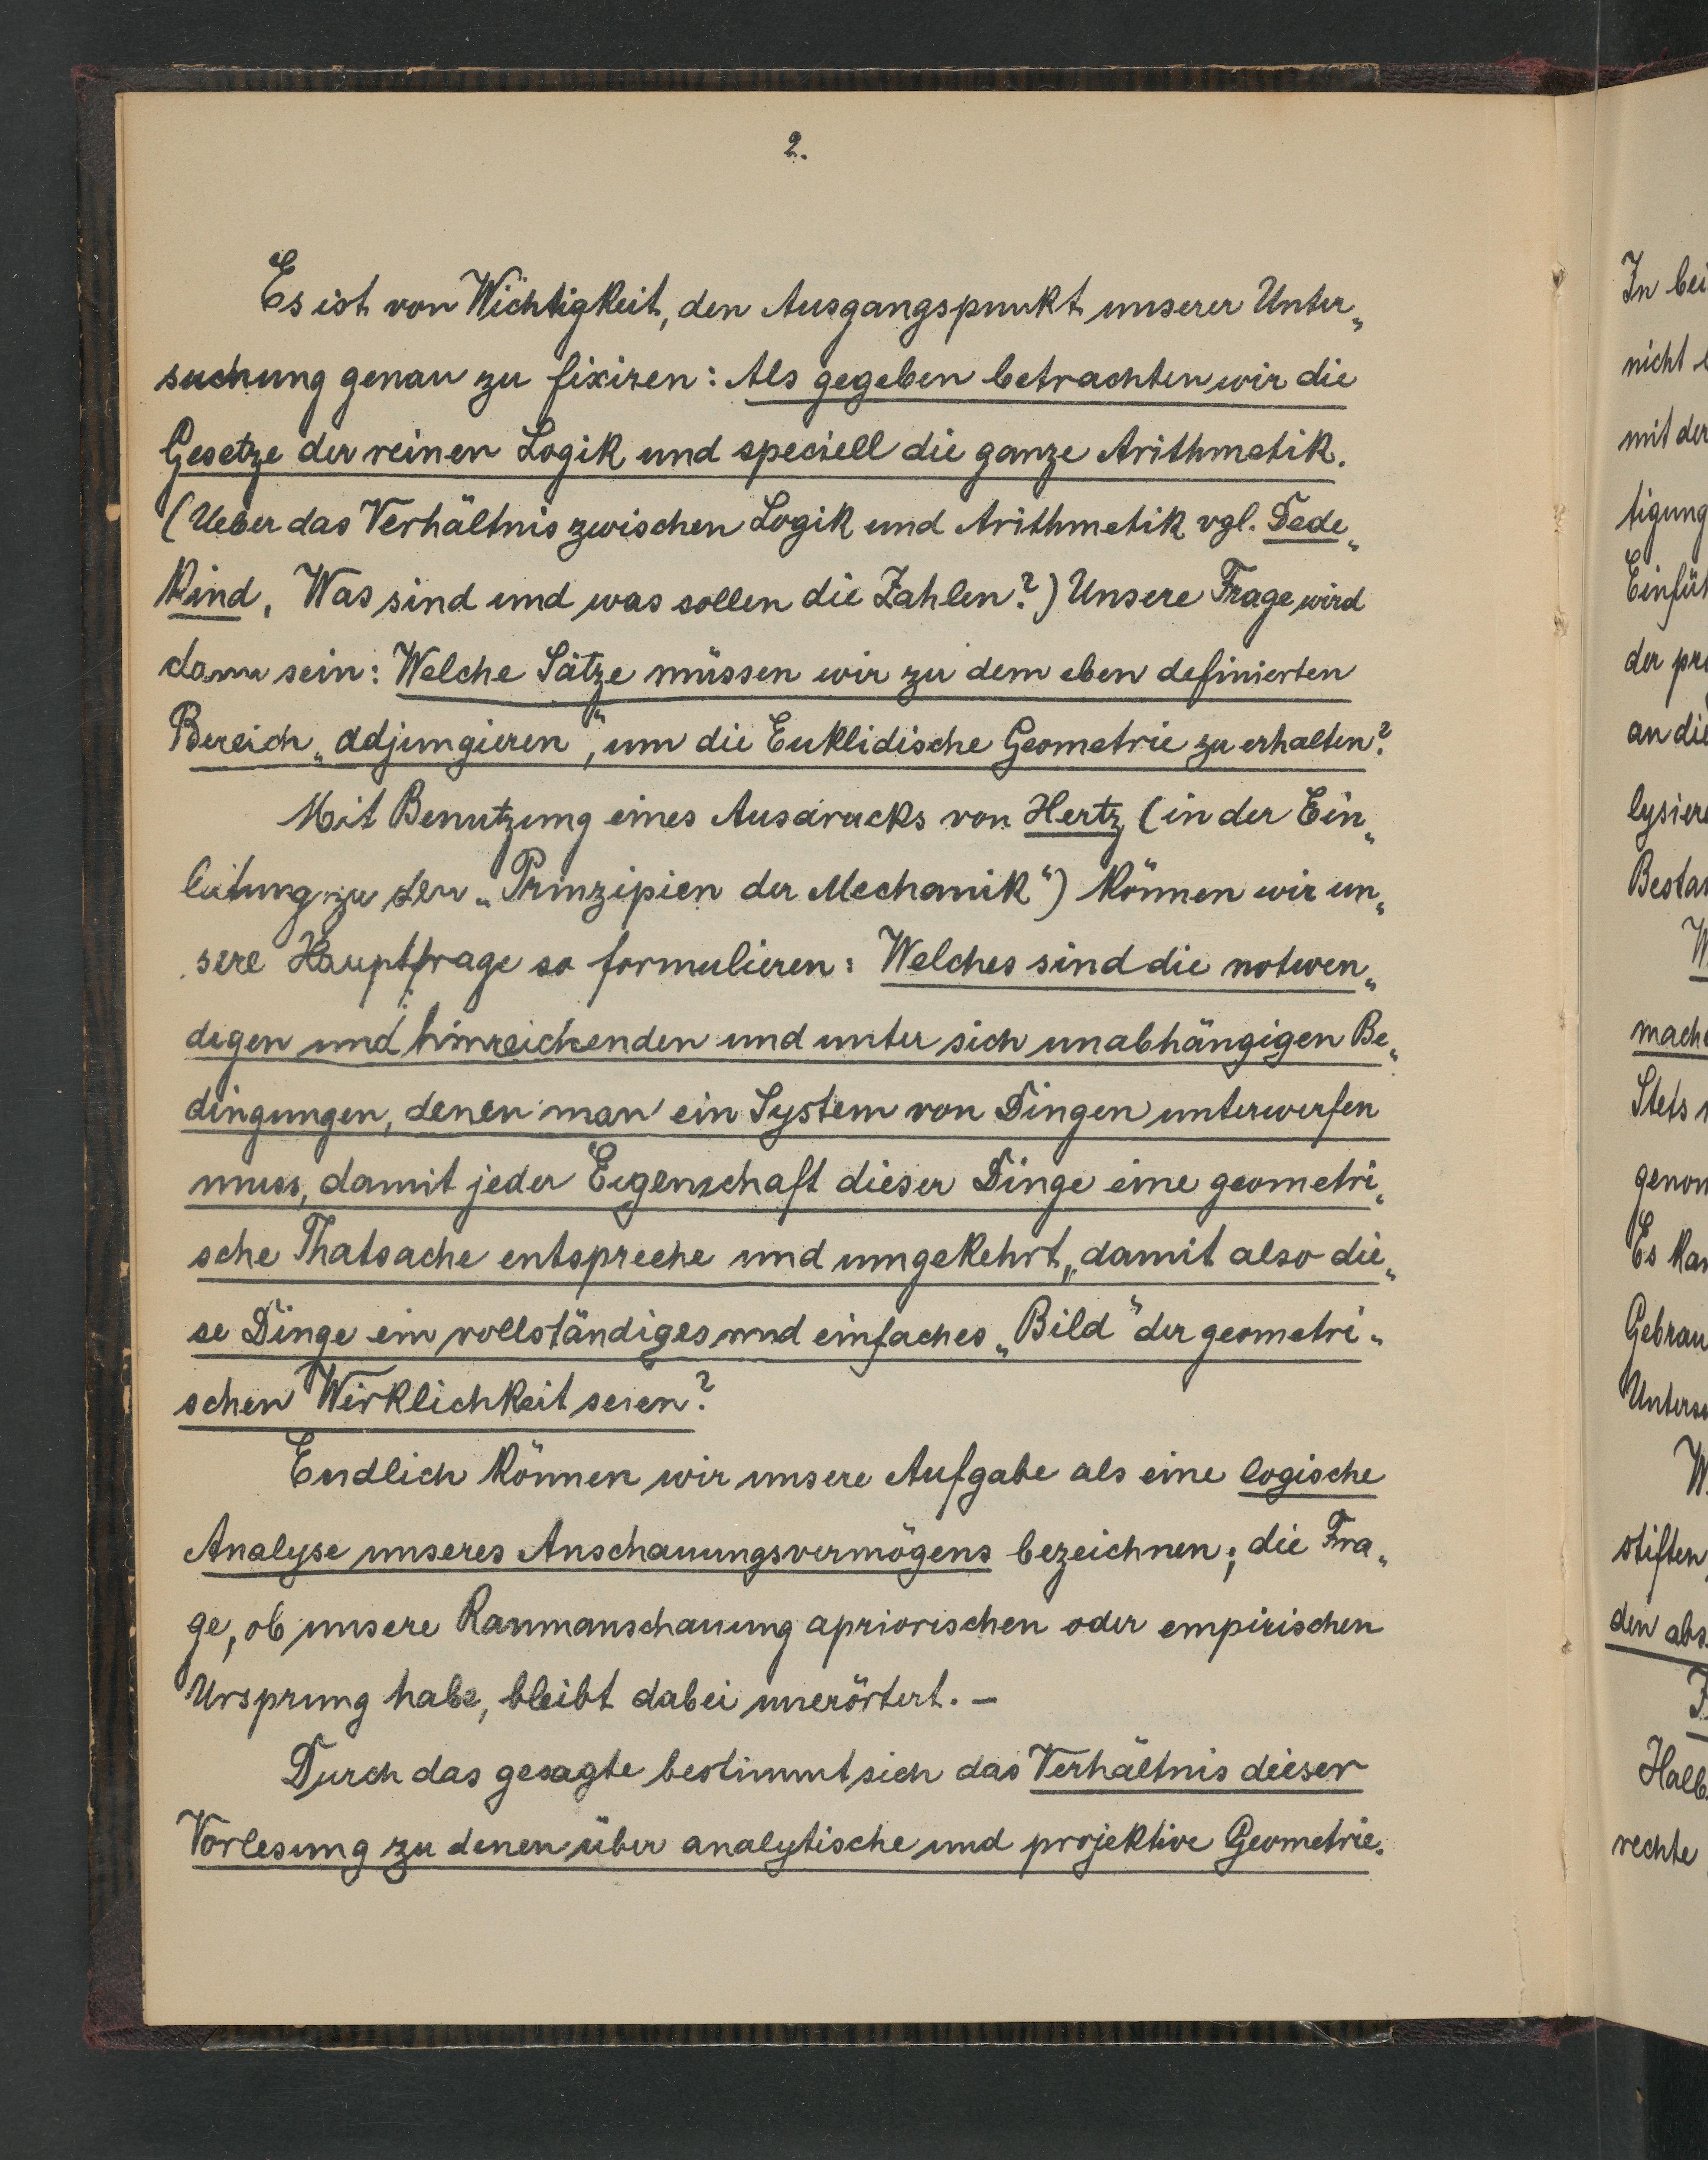 2.
Es ist von Wichtigkeit, den Ausgangspunkt unserer Unter„
suchung genau zu fixiren: Als gegeben betrachten wir die
Gesetze der reinen Logik und speciell die ganze Arithmetik.
(Ueber das Verhältnis zwischen Logik und Arithmetik vgl. Dede„
kind, Was sind und was sollen die Zahlen?) Unsere Frage wird
dann sein: Welche Sätze müssen wir zu dem eben definierten
Bereich „adjungieren“, um die Euklidische Geometrie zu erhalten?
Mit Benutzung eines Ausdrucks von Hertz (in der Ein„
leitung zu den „Prinzipien der Mechanik“) können wir un„
sere Hauptfrage so formulieren: Welches sind die notwen„
digen und hinreichenden und unter sich unabhängigen Be„
dingungen, denen man ein System von Dingen unterwerfen
muss, damit jeder Eigenschaft dieser Dinge eine geometri„
sche Thatsache entspreche und umgekehrt, damit also die„
se Dinge ein vollständiges und einfaches „Bild“ der geometri„
schen Wirklichkeit seien?
Endlich können wir unsere Aufgabe als eine logische
Analyse unseres Anschauungsvermögens bezeichnen; die Fra„
ge, ob unsere Raumanschauung apriorischen oder empirischen
Ursprung habe, bleibt dabei unerörtert. –
Durch das gesagte bestimmt sich das Verhältnis dieser
Vorlesung zu denen über analytische und projektive Geometrie.
In bei
nicht
mit der
tigung
Einfüh
der pro
an die
lysiere
Bestan
W
mach
Stets
genom
Es kan
Gebrau
Unters
W
stiften,
den abs
Halb
rechte